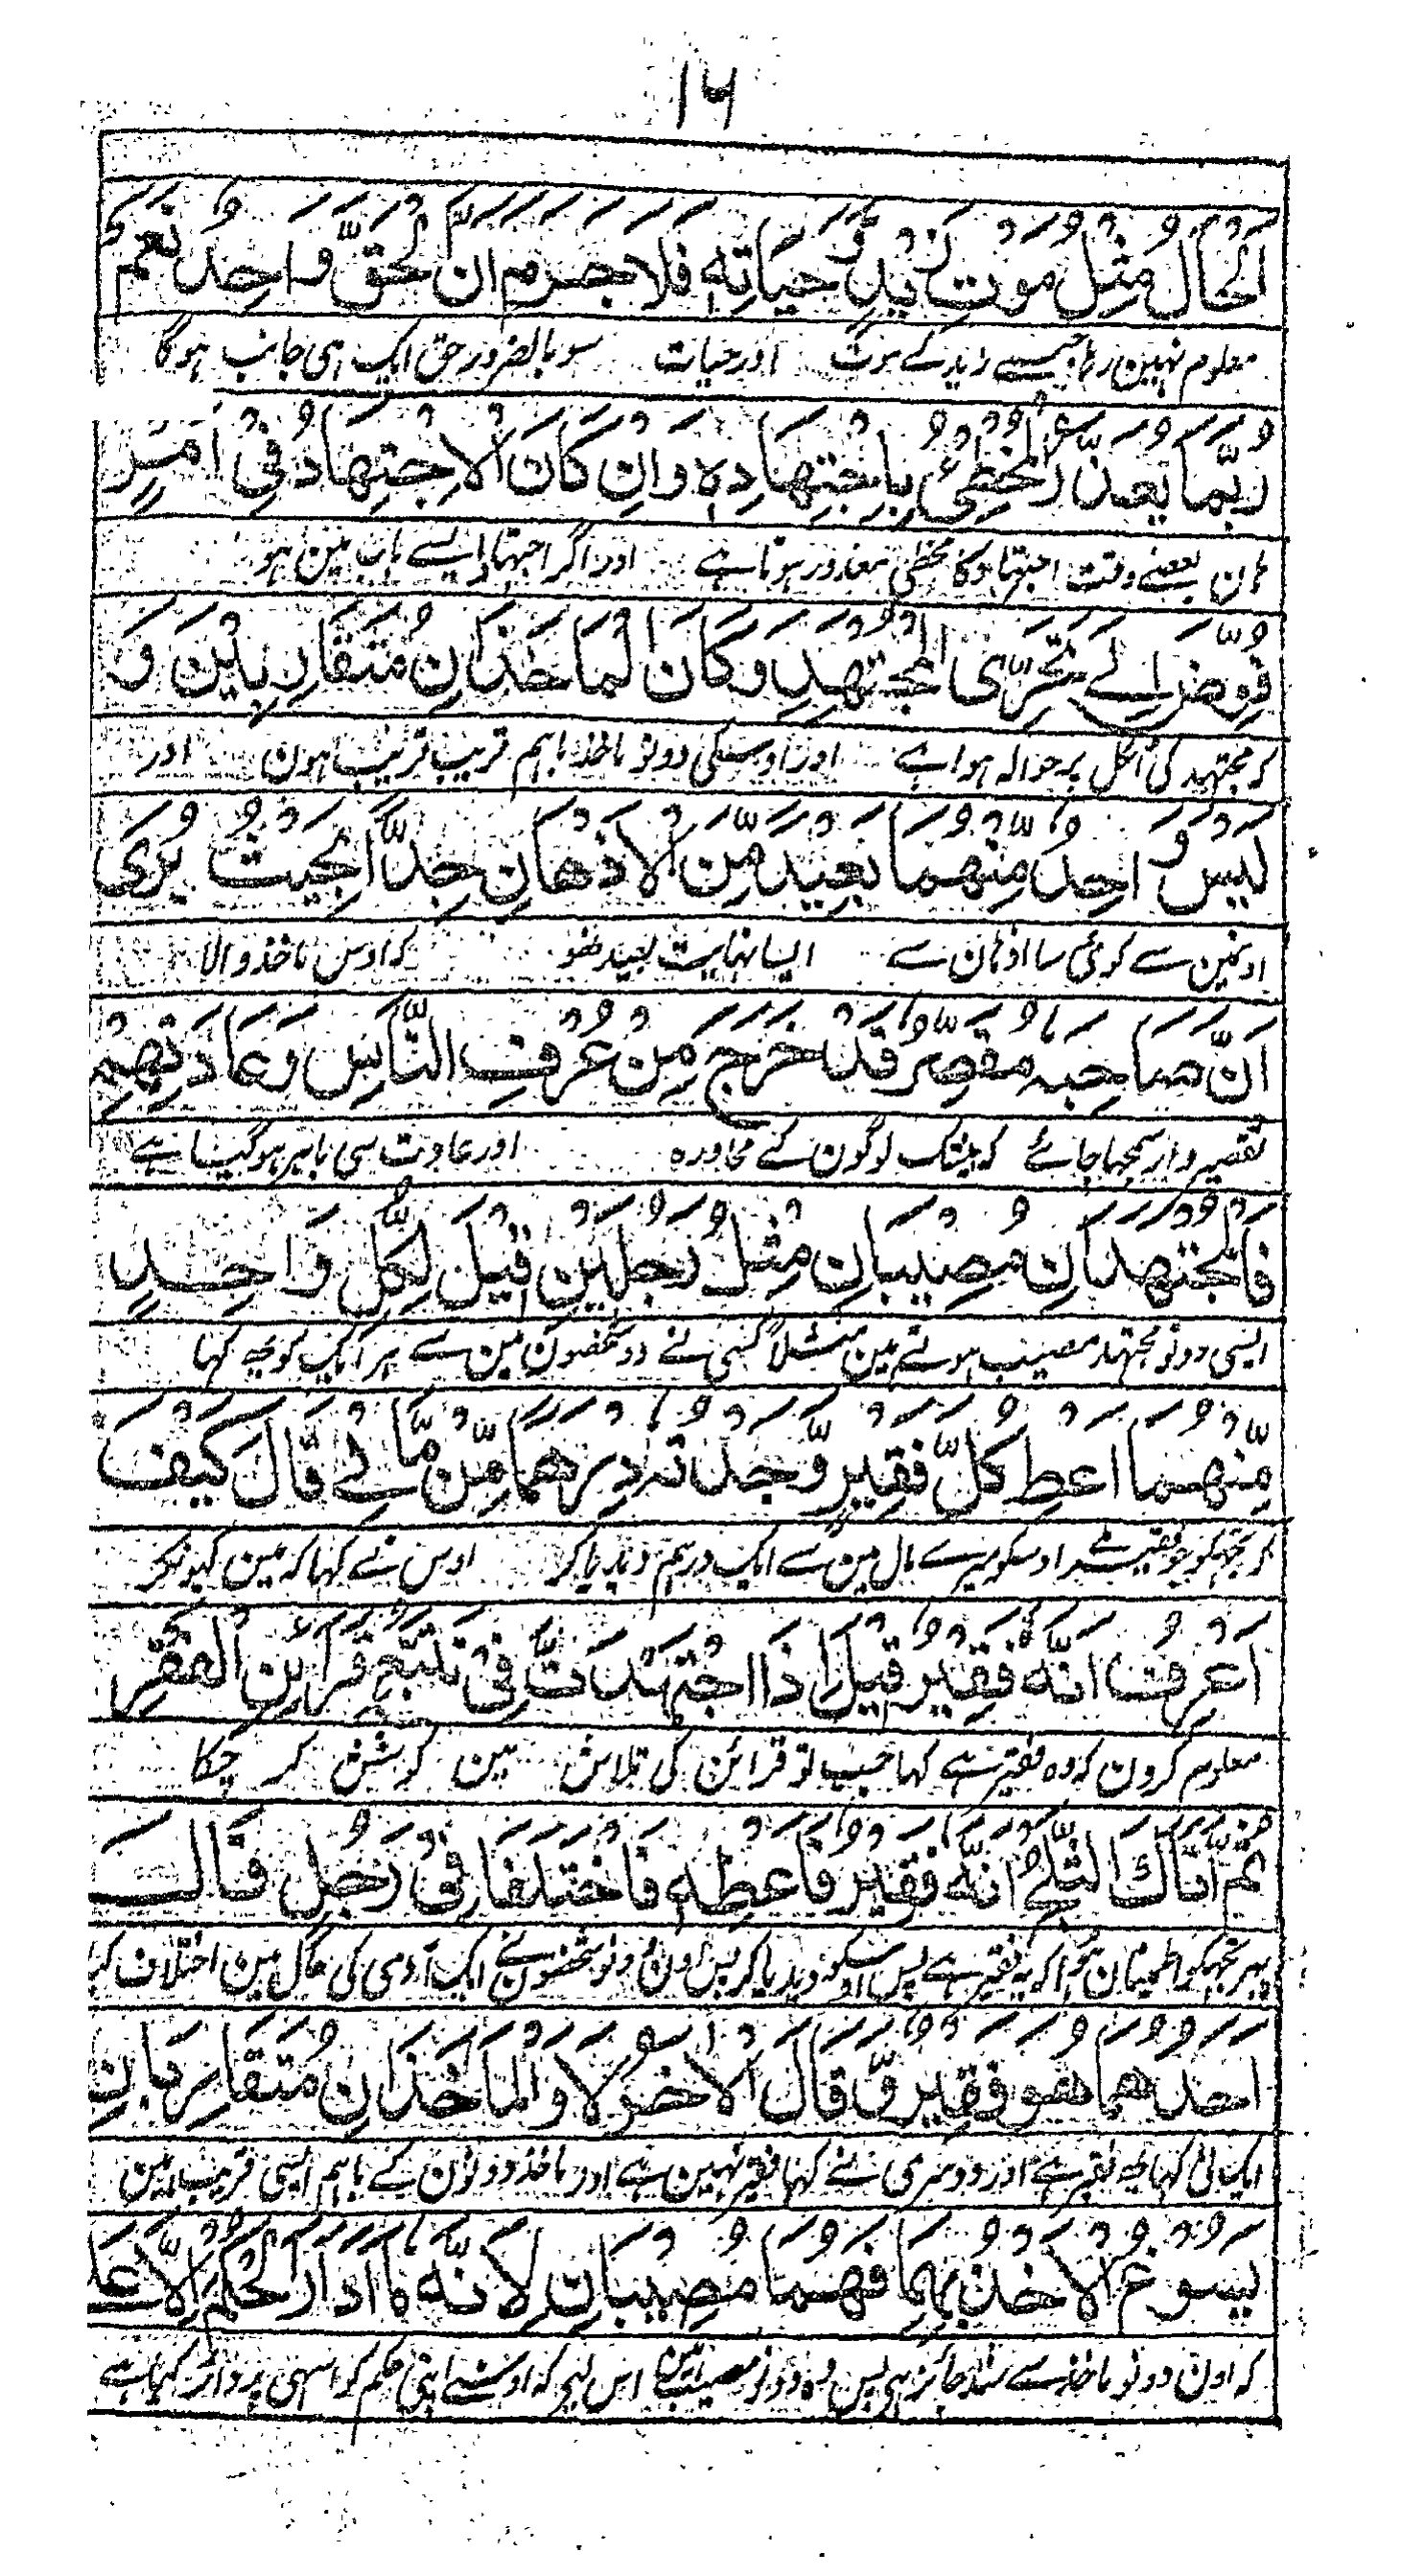 ۱۶
اَلْحَالُ مِثْلُ مَوْتِ زَيْدٍ وَّ حَيَاتِهٖ فَلَا جَرَمَ اَنَّ الْحَقَّ وَاحِدٌ نَعَمْ
معلوم نہین رہا جیسے زید کے موت اور حیات سو بالضرور حق ایک ہی جانب ہوگا
رُبَّمَا يُعْذَرُ الْمُخْطِئُ بِاِجْتِهَادِهٖ وَاِنْ كَانَ الْاِجْتِهَادُ فِيْ اَمْرٍ
ہان بعضے وقت اجتہاد کا مخطی معذور ہوتا ہے اور اگر اجتہاد ایسے باب مین ہو
فُوِّضَ اِلٰى تَحَرِّى الْمُجْتَهِدِ وَكَانَ الْمَاخَذَانِ مُتَقَارِبَيْنِ وَ
کہ مجتہد کی اٹکل پر حوالہ ہوا ہے اور اوسکی دونو ماخذ باہم قریب قریب ہون اور
لَيْسَ وَاحِدٌ مِّنْهُمَا بَعِيْدًا مِّنَ الْاَذْهَانِ جِدًّا بِحَيْثُ يُرٰى
اونمین سے کوئی سا اذہان سے ایسا نہایت بعید نہو کہ اوس ماخذ والا
اَنَّ صَاحِبَهٗ مُقَصِّرٌ قَدْ خَرَجَ مِنْ عُرْفِ النَّاسِ وَعَادَتِهِمْ
تقصیر وار سمجہا جائے کہ بیشک لوگون کے محاورہ اور عادت سی باہر ہوگیا ہے
فَالْمُجْتَهِدَانِ مُصِيْبَانِ مِثْلُ رَجُلَيْنِ قِيْلَ لِكُلِّ وَاحِدٍ
ایسی دونو مجتہد مصیب ہوتے ہین مثلاً کسی نے دو شخصون مین سے ہر ایک کو یہ کہا
مِّنْهُمَا اَعْطِ كُلَّ فَقِيْرٍ وَّجَدْتَهٗ دِرْهَمًا مِّنْ مَّالِيْ قَالَ كَيْفَ
کہ تجہکو جو فقیر ملے اوسکو میرے مال مین سے ایک درہم دیدیا کر اوس نے کہا کہ مین کیونکر
اَعْرِفُ اَنَّهٗ فَقِيْرٌ قِيْلَ اِذَا اجْتَهَدْتَّ فِيْ تَتَبُّعِ قَرَائِنِ الْفَقْرِ
معلوم کرون کہ وہ فقیر ہے کہا جب تو قرائن کی تلاش مین کوشش کر چکا
ثُمَّ اَتَاكَ الثَّلَجُ اَنَّهٗ فَقِيْرٌ فَاَعْطِهٖ فَاخْتَلَفَا فِيْ رَجُلٍ قَالَ
پہر تجہکو اطمینان ہوا کہ یہ فقیر ہے پس اوسکو دیدیا کر پس اون دونو شخصون نے ایک آدمی کی حال مین اختلاف کیا
اَحَدُهُمَا هُوَ فَقِيْرٌ وَّقَالَ الْاٰخَرُ لَا وَالْمَاخَذَانِ مُتَقَارِبَانِ
ایک نی کہا یہ فقیر ہے اور دوسری نے کہا فقیر نہین ہے اور ماخذ دونون کے باہم ایسی قریب ہین
يَسُوْغُ الْاَخْذُ بِهِمَا فَهُمَا مُصِيْبَانِ لِاَنَّهٗ مَا اَدَارَ الْحُكْمَ اِلَّا عَلٰى
کہ اون دونو ماخذ سے سند جائز ہی پس وہ دونو مصیب ہین اس لیے کہ اوسنے اپنی حکم کو اسہی پر دائر کیا ہے